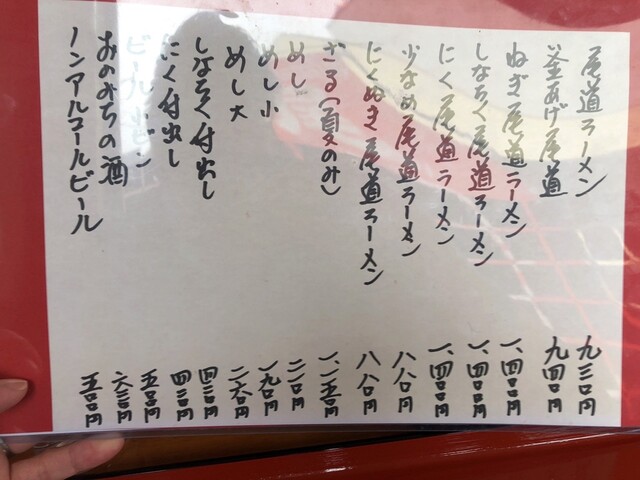 尾道ラーメン 九三〇円
釜あげ尾道 九四〇円
ねぎ尾道ラーメン 一、〇四〇円
しなちく尾道ラーメン 一、〇四〇円
にく尾道ラーメン 一、〇四〇円
少なめ尾道ラーメン 八八〇円
にくぬき尾道ラーメン 八八〇円
ざる(夏のみ) 一、一五〇円
めし 二一〇円
めし小 一九〇円
めし大 二六〇円
しなちく付出し 四三〇円
にく付出し 四三〇円
ビール小ビン 五〇〇円
おのみちの酒 六三〇円
ノンアルコールビール 五〇〇円